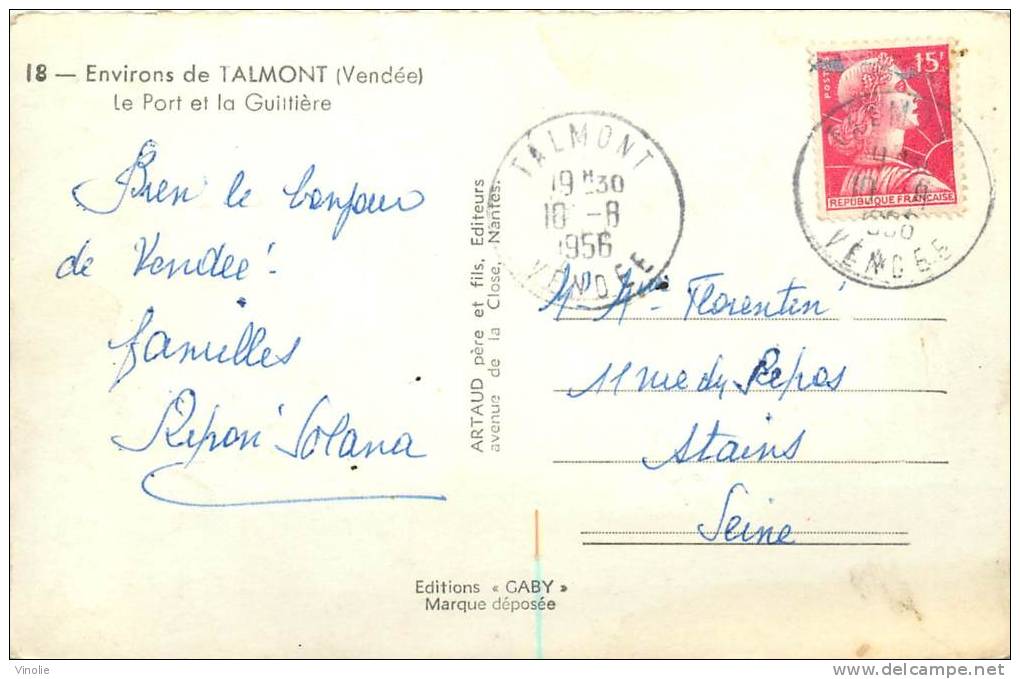 18 — Environs de TALMONT (Vendée)
Le Port et la Guittière
Bien le bonjour
de Vendée.
familles
Ripon Solana
ARTAUD père et fils, Editeurs
avenue de la Close, Nantes.
TALMONT
19H30
10 -8
1956
VENDEE
POSTES
15F
REPUBLIQUE FRANÇAISE
1956
VENDEE
Mr Mme Florentin
11 rue du Repos
Stains
Seine
Editions « GABY »
Marque déposée
Vinolie
http://www.delcampe.net